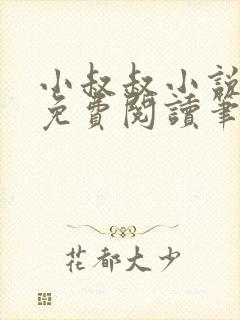 小叔叔小說
免費閱讀筆
花都大少